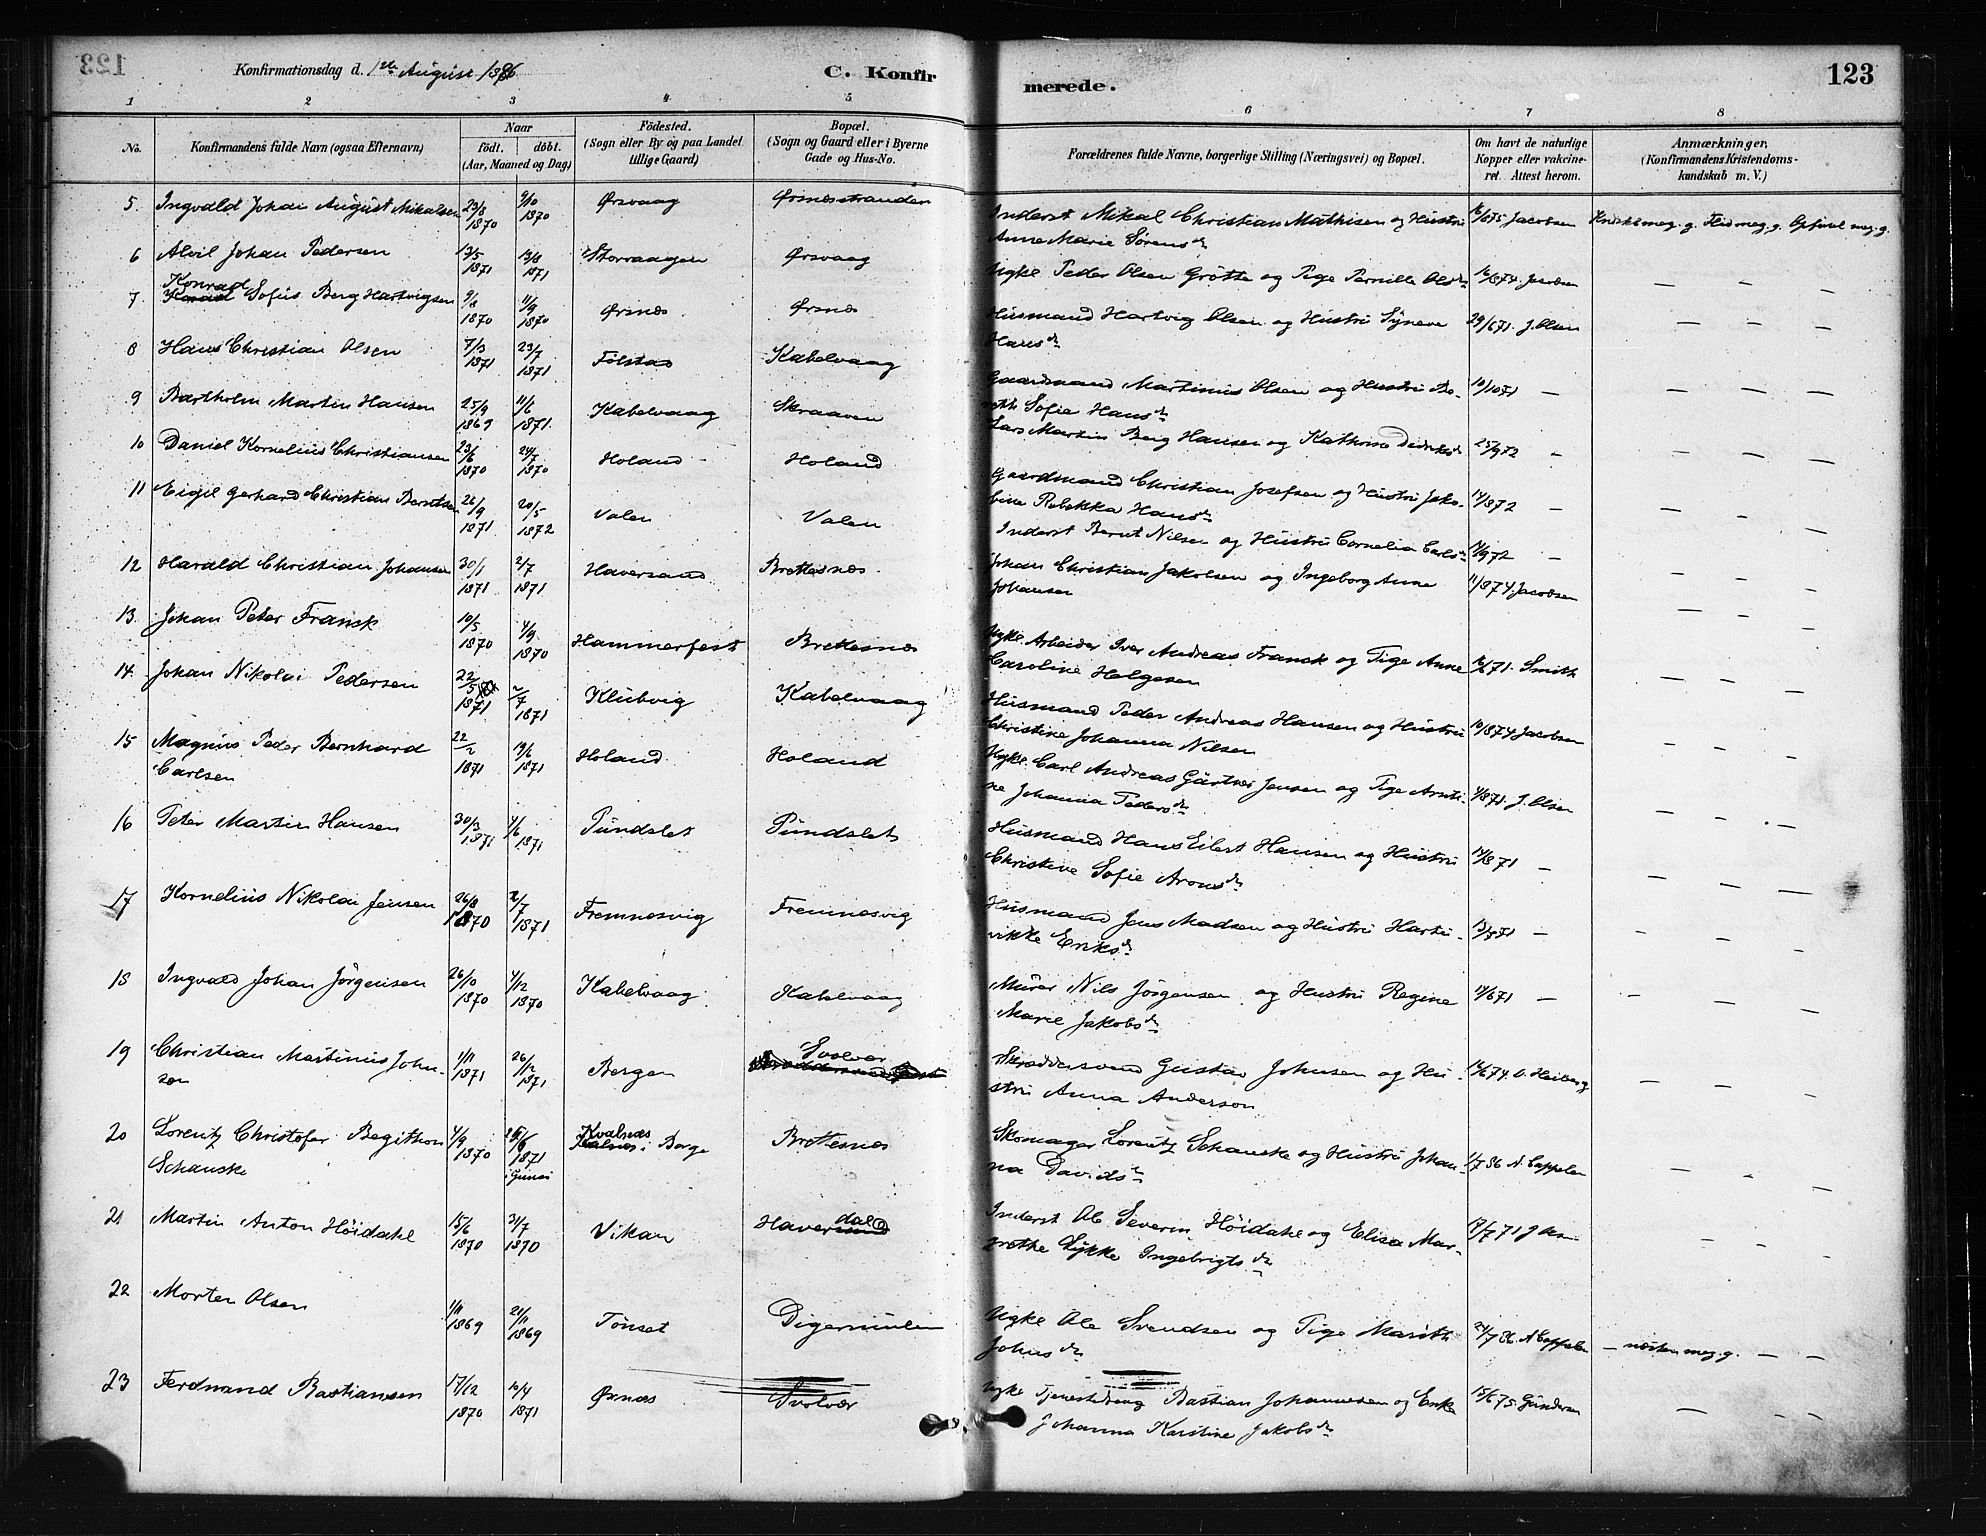 123
Konfirmationsdag d. 1ste August 1886
C. Konfirmerede.
123
1 2 3 4 5 6 7 8
No.
Konfirmandens fulde Navn (ogsaa Efternavn)
Naar
født. døbt.
(Aar, Maaned og Dag)
Fødested.
(Sogn eller By og paa Landet
tillige Gaard)
Bopæl.
(Sogn og Gaard eller i Byerne
Gade og Hus-No.
Forældrenes fulde Navne, borgerlige Stilling (Næringsvei) og Bopæl.
Om havt de naturlige
Kopper eller vakcine-
ret. Attest herom.
Anmærkninger,
(Konfirmandens Kristendoms-
kundskab m. V.)
5. Ingvald Johan August Mikalsen 23/8 1870 9/10 1870 Ørsvaag Ørsnesstranden Inderst Mikal Christian Mathisen og Hustru Jacobsen Kundsk. meg. g. Flid meg. g. Opførsel meg. g.
Anne Marie Sørensdr
6 Alvil Johan Pedersen 13/5 1871 13/8 1871 Storvaagen Ørsvaag Ugke Peder Olsen Grøtte og Pige Pernille Olsdr 16/874. Jacobsen — — —
7. Konrad Sofus Berg Hartvigsen 9/8 1870 11/9 1870 Ørsnes Ørsnes Husmand Hartvig Olsen og Hustru Syneva 29/671. J. Olsen — — —
Hansdr
8 Hans Christian Olsen 7/3 1871 23/7 1871 Følstad Kabelvaag Gaardmand Martinus Olsen og Hustru Be- 10/1071 — — — —
reth Sofie Hansdr
9 Bartholm Martin Hansen 25/9 1869 11/6 1871. Kabelvaag Skraaven Lars Martin Berg Hansen og Kathrine Didriksdr 25/972 — — — —
10 Daniel Kornelius Christiansen 23/6 1870 24/7 1870 Holand Holand Gaardmand Christian Josefsen og Hustru Jako- 14/872 — — — —
bine Rebekka Hansdr
11 Eigil Gerhard Christian Berntsen 26/9 1871 20/5 1872 Valen Valen Inderst Bernt Nilsen og Hustru Cornelia Carlsdr 972 — — — —
12 Harald Christian Johansen 30/1 1871 2/7 1871 Haversand Brettesnes Johan Christian Jakobsen og Ingeborg Anna 11/874 Jacobsen — — —
Johansen
13. Johan Peter Franck 10/5 1870 4/9 1870 Hammerfest Brettesnes Ugke. Arbeider Iver Andreas Franck og Pige Anne 71. Smith — — —
Caroline Helgesen
14. Johan Nikolai Pedersen 22/5 1871 2/7 1871 Klubvig Kabelvaag Husmand Peder Andreas Hansen og Hustru 10/874 Jacobsen — — —
Christine Johanna Nilsen
15 Magnus Peder Bernhard 22/2 1871 18/6 1871 Holand Holand Ugke. Carl Andreas Gärtner Jensen og Pige Arnti- 4/871. J. Olsen — — —
Carlsen ne Johanna Pedersdr
16 Peter Martin Hansen 30/3 1871 4/6 1871 Pundslet Pundslet Husmand Hans Eilert Hansen og Hustru 14/871 — — — —
Christine Sofie Aronsdr
17 Kornelius Nikolai Jensen 26/8 1870 2/7 1871 Fremnesvig Fremnesvig Husmand Jens Madsen og Hustru Hart- 13/871 — — — —
vikke Eriksdr
18 Ingvald Johan Jørgensen 26/10 1870 4/12 1870 Kabelvaag Kabelvaag Murer Nils Jørgensen og Hustru Regine 14/671 — — — —
Marie Jakobsdr
19 Christian Martinus John- 1/11 1871 26/12 1871 Bergen Svolvær Skræddersvend Gustav Johnsen og Hu- 14/674. O. Heiberg — — —
sen stru Anna Anderson
20 Lorentz Christofer Begithon 4/9 1870 1871 Kvalnes i Borge Brettesnes Skomager Lorentz Schanske og Hustru Johan- 1/7 86 A. Cappelen — — —
Schanske na Davidsdr
21 Martin Anton Høidahl 15/6 1870 31/7 1870 Vikan Haverdal Inderst Ole Severin Høidahl og Elisa Mar- 71 — — —
grethe Lykke Ingebrigtsdr
22 Morten Olsen 1/11 1869 21/11 1869 Tønset Digermulen Ugke Ole Svendsen og Pige Marith 24/7 86. A Cappelen — næsten meg. g. — —
Johnsdr
23 Ferdinand Bastiansen 17/12 1870 10/4 1871 Ørsnes Svolvær Ugke Tjenestedreng Bastian Johannesen og Enke 15/675. Gundersen — — —
Johanna Karstine Jakobsdr